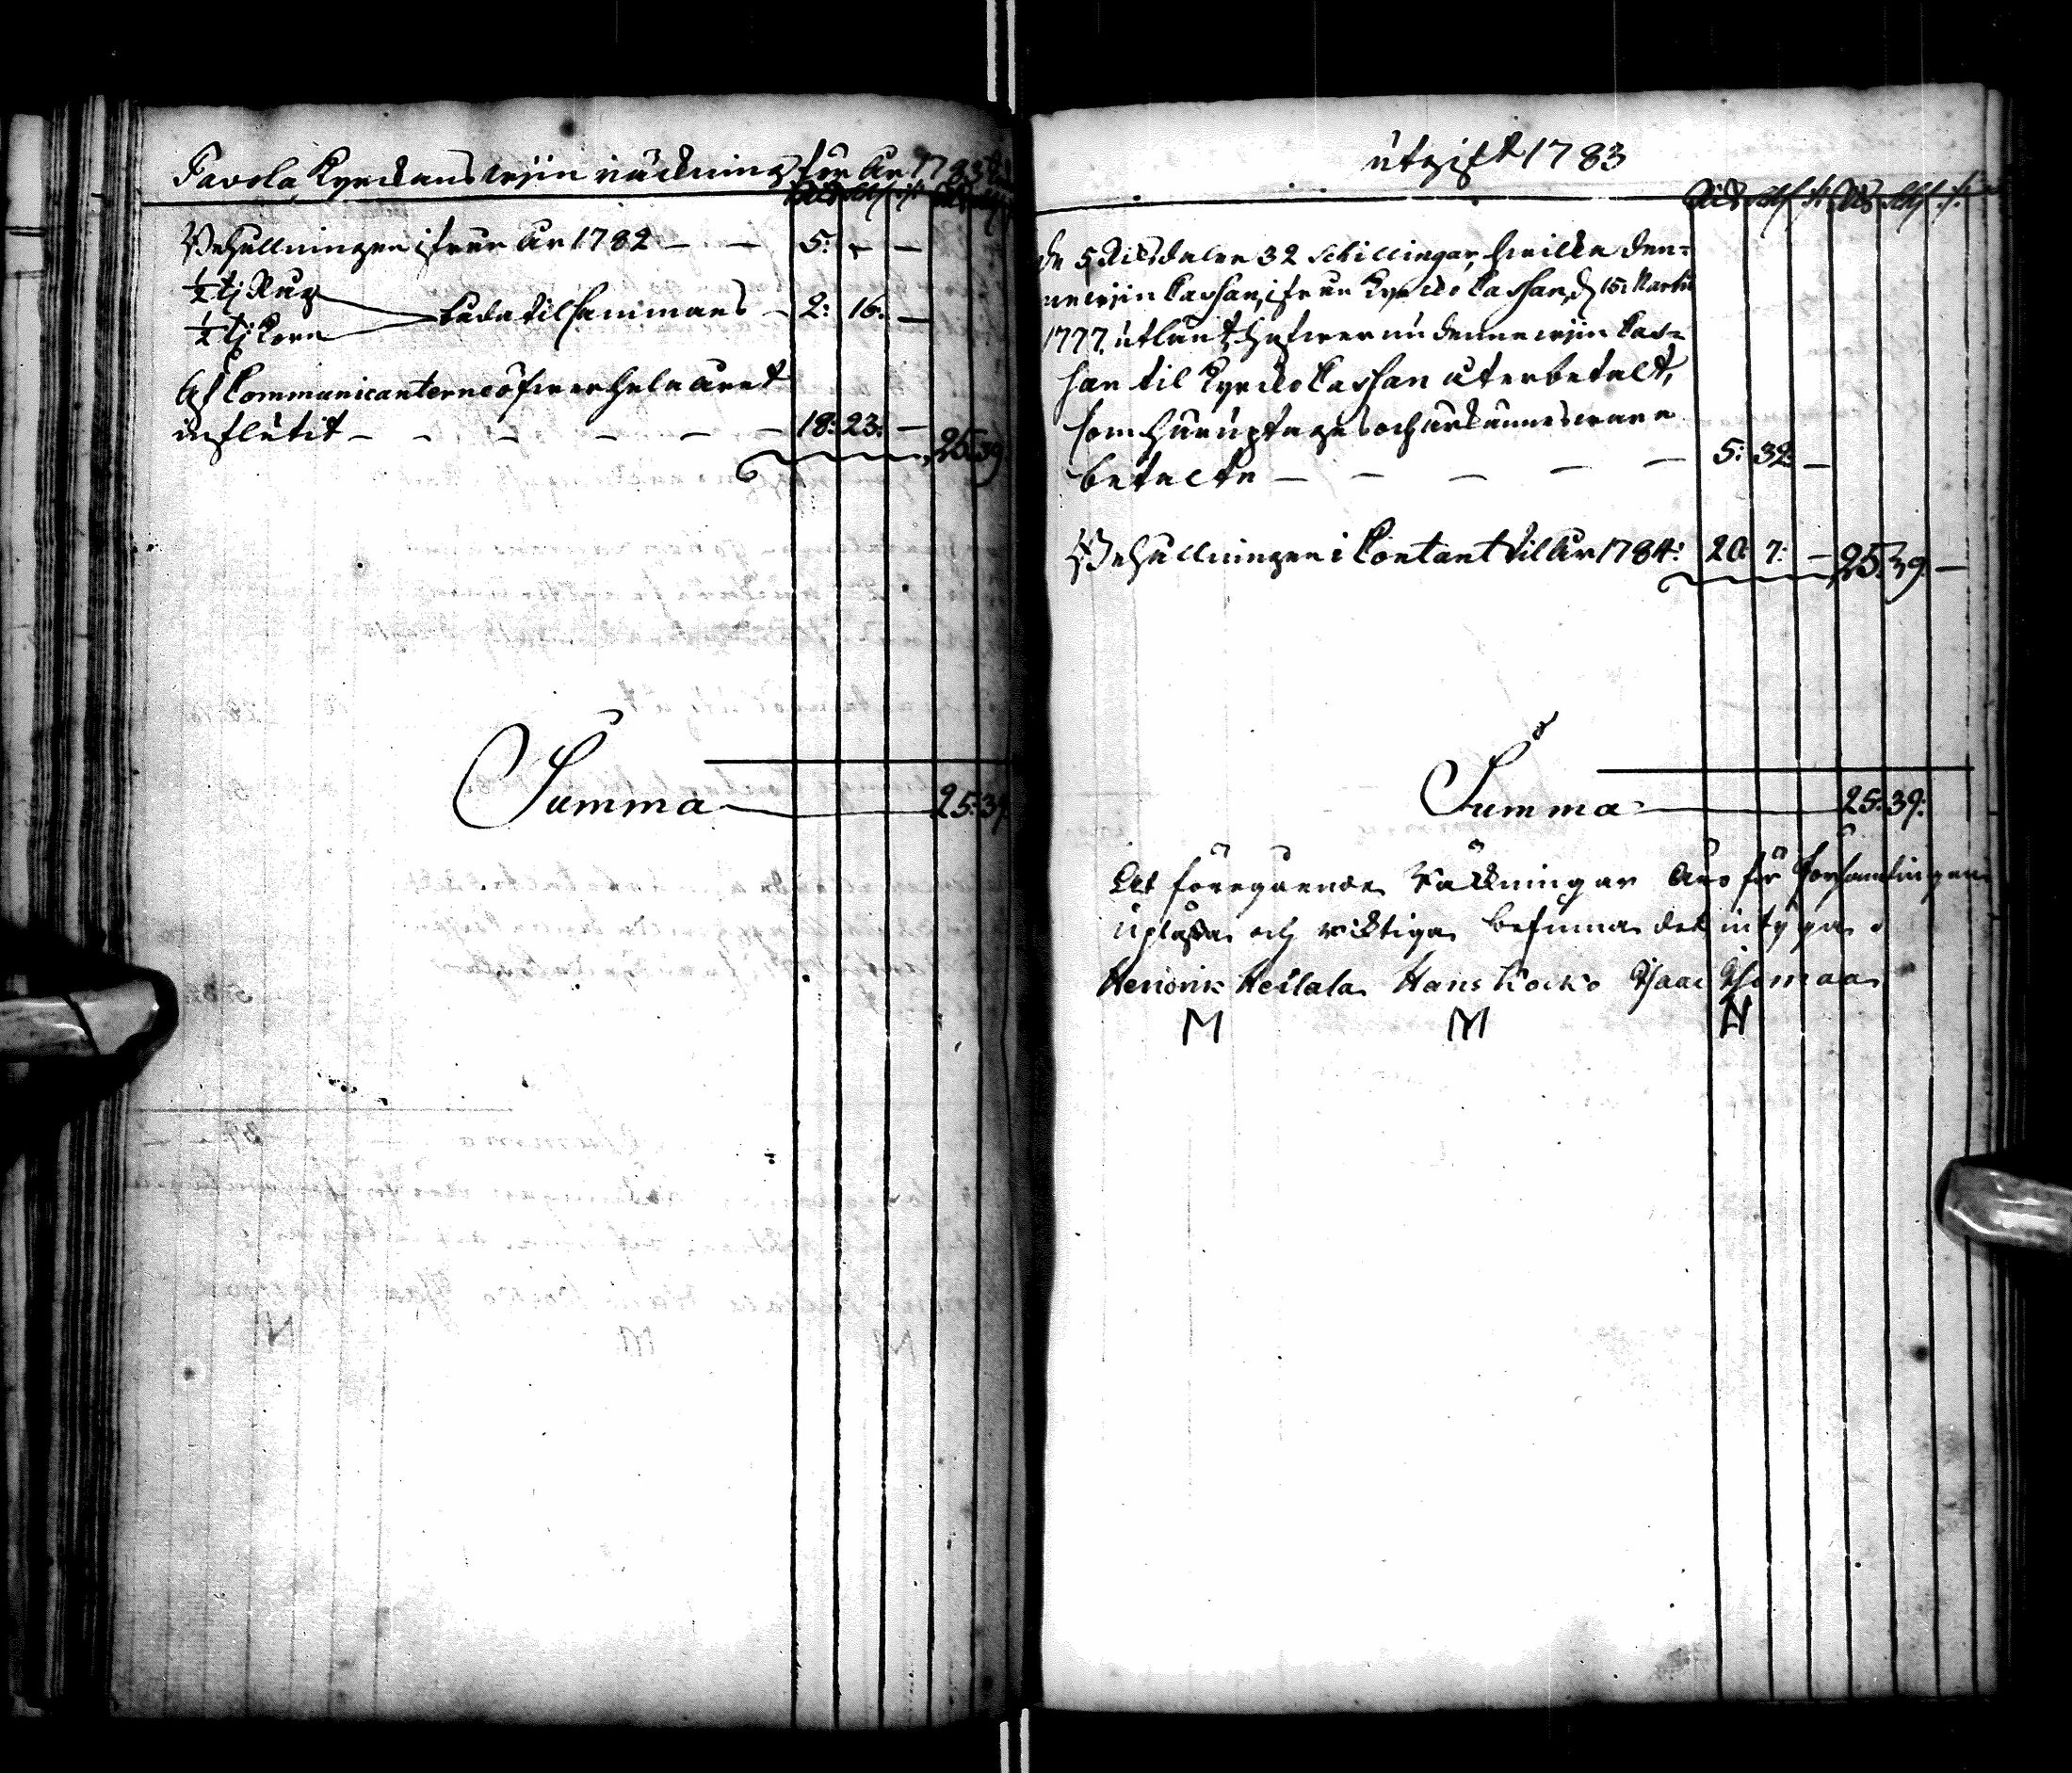 Pavola Kyrckans wijn räckning för År 1783
Rd Sch rst Rd Sch
Behållningen ifrån År 1782 — — 5: - —
½ tj Råg
½ tj Korn
bada tilsammans — 2: 16: —
Af Communicanterne öfwer hela året
influtit — — — — — — 18: 23: — 25: 39
Summa 25: 39
utgift 1783
Rd Sch rst Rd Sch rst
de 5 Riksdaler 32 Schillingar, hwilka den-
ne wijn Cassan, ifrån Kyrcko Cassan, d 15 Martii
1777, utlånt, hafwer nu denne wijn Cas-
san til Kyrcko Cassan återbetalt,
som här uptages och erkännes wara
betalte — — — — — 5: 32: —
Behållningen i Contant til År 1784: 20: 7: — 25: 39: —
Summa 25: 39:
At föregående Räckningar äro för Församlingen
upläsna ochricktiga befunna det intyga.
Hendrik Heilala Hans Kocko Isaac Thomaa
M M N